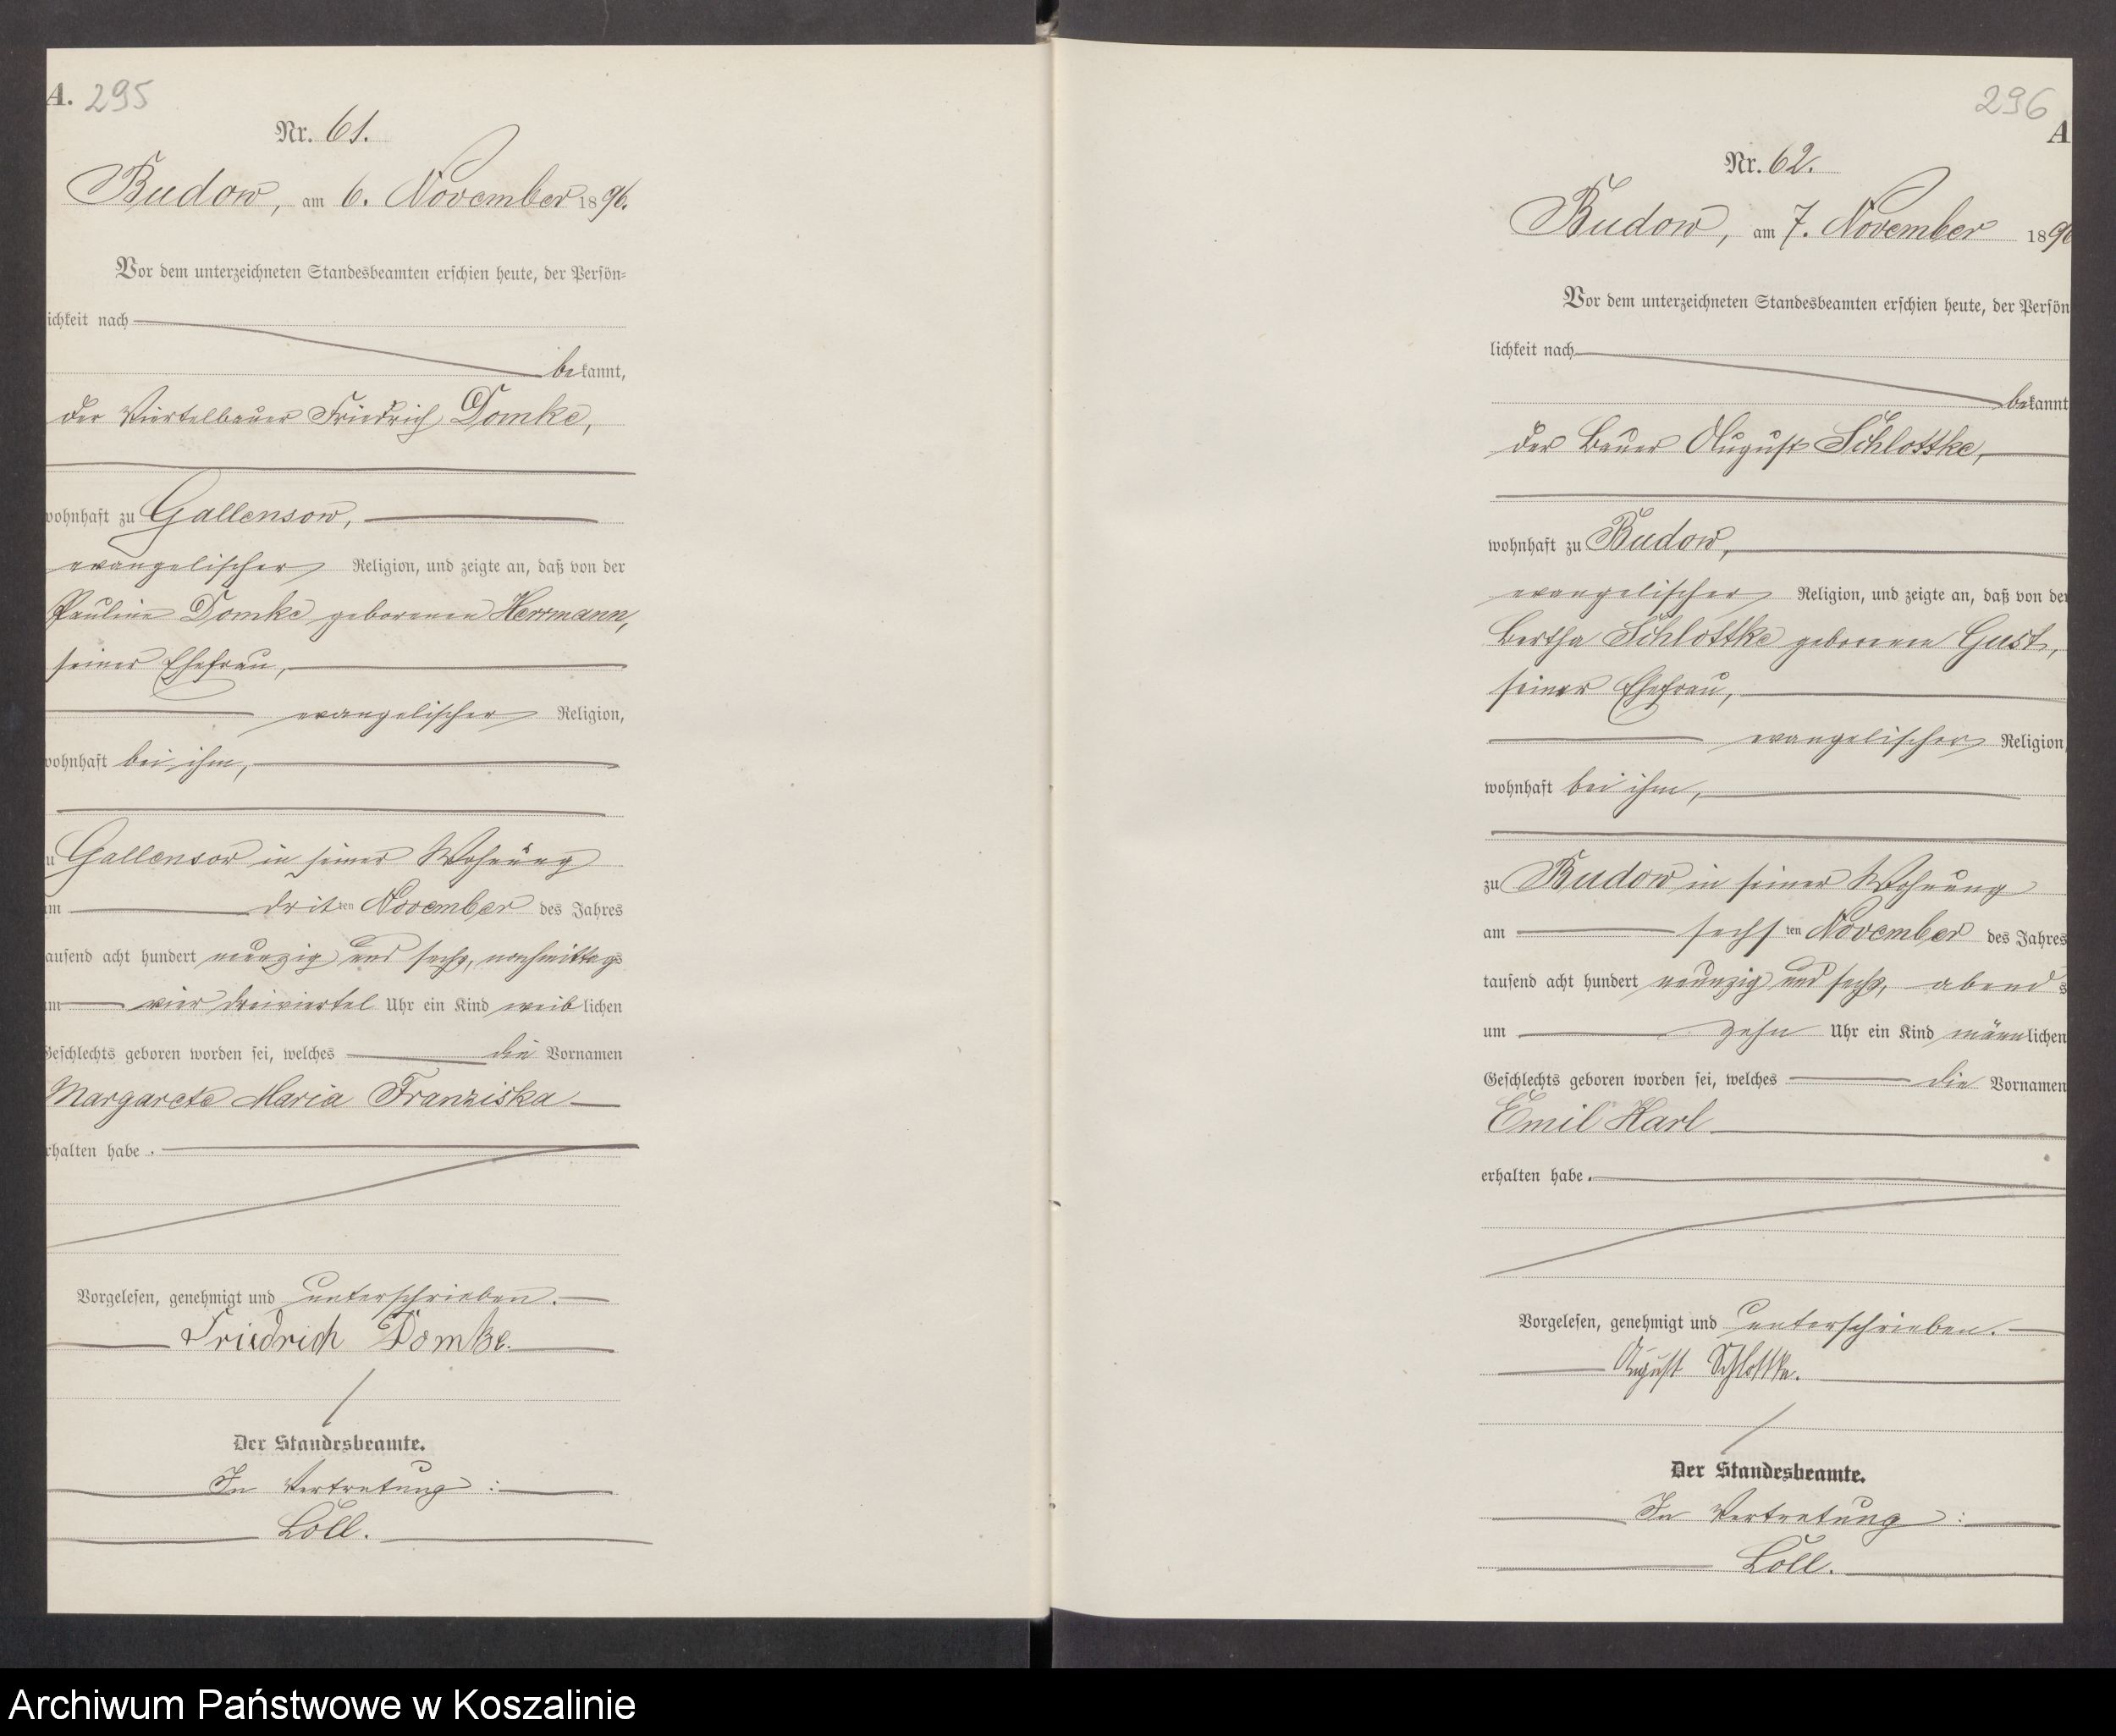 A. 295
Nr. 61.
Budow, am 6. November 1896.
Vor dem unterzeichneten Standesbeamten erschien heute, der Persön-
ichkeit nach
bekannt,
der Viertelbauer Friedrich Domke,
wohnhaft zu Gallensow,
evangelischer Religion, und zeigte an, daß von der
Pauline Domke geborenen Herrmann,
seiner Ehefrau,
evangelischer Religion,
wohnhaft bei ihm,
u Gallensow in seiner Wohnung
am dritten November des Jahres
tausend acht hundert neunzig und sechs, nachmittags
um vier dreiviertel Uhr ein Kind weiblichen
Geschlechts geboren worden sei, welches die Vornamen
Margarete Maria Franziska
rhalten habe.
Vorgelesen, genehmigt und unterschrieben.
Friedrich Domke.
Der Standesbeamte.
In Vertretung:
Loll.
296
A
Nr. 62.
Budow, am 7. November 1896
Vor dem unterzeichneten Standesbeamten erschien heute, der Persön
lichkeit nach
bekannt
der Bauer August Schlottke,
wohnhaft zu Budow,
evangelischer Religion, und zeigte an, daß von der
Bertha Schlottke geborene Gust,
seiner Ehefrau,
evangelischer Religion,
wohnhaft bei ihm,
zu Budow in seiner Wohnung
am sechsten November des Jahres
tausend acht hundert neunzig und sechs, abends
um zehn Uhr ein Kind männlichen
Geschlechts geboren worden sei, welches die Vornamen
Emil Karl
erhalten habe.
Vorgelesen, genehmigt und unterschrieben.
August Schlottke.
Der Standesbeamte.
In Vertretung:
Loll.
Archiwum Państwowe w Koszalinie